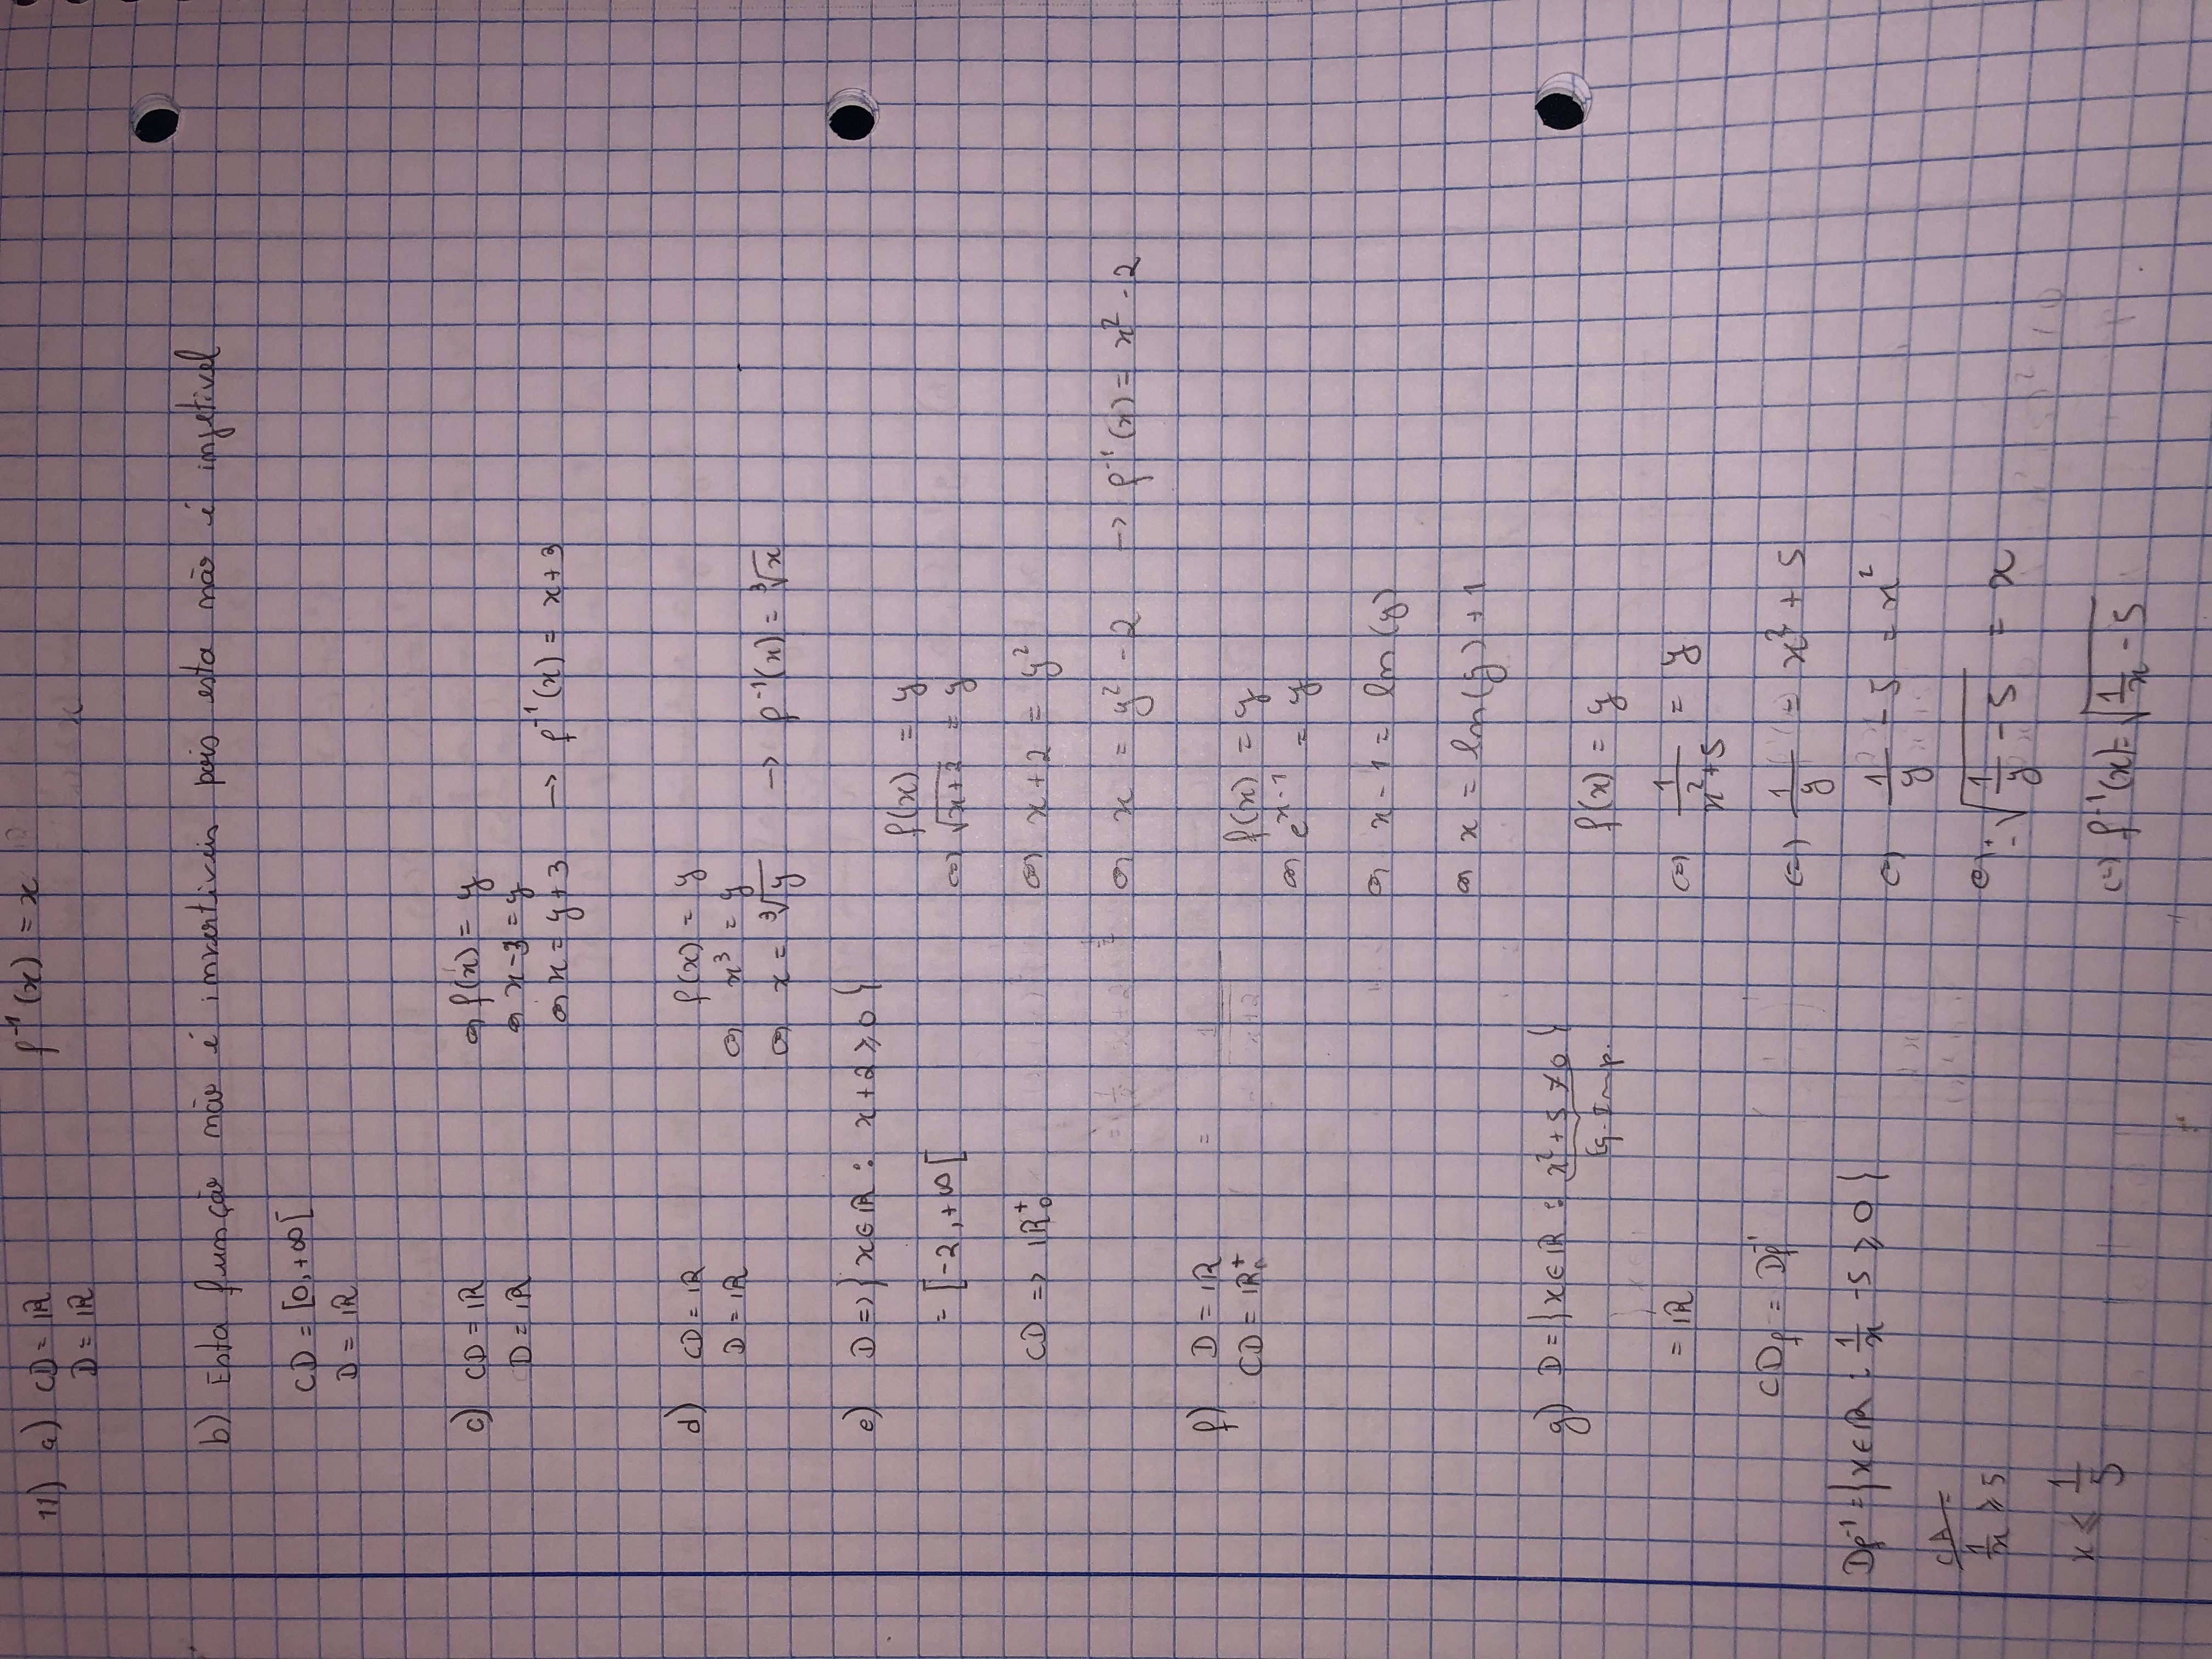 11) a) CD = ℝ
D = ℝ
f⁻¹(x) = x
b) Esta função não é invertiveis pois esta não é injetivel
CD = [0, +∞[
D = ℝ
c) CD = ℝ
D = ℝ
⇔ f(x) = y
⇔ x-3 = y
⇔ x = y+3 → f⁻¹(x) = x+3
d) CD = ℝ
D = ℝ
f(x) = y
⇔ x³ = y
⇔ x = ∛y → f⁻¹(x) = ∛x
e) D => {x ∈ ℝ : x+2 ≥ 0}
= [-2, +∞[
CD => ℝ₀⁺
f(x) = y
⇔ √(x+2) = y
⇔ x+2 = y²
⇔ x = y² - 2 → f⁻¹(x) = x² - 2
f) D = ℝ
CD = ℝ₀⁺
f(x) = y
⇔ e^(x-1) = y
⇔ x-1 = ln(y)
⇔ x = ln(y) + 1
g) D = {x ∈ ℝ : x²+5 ≠ 0}
Eq. Imp.
= ℝ
CD_f = D_f⁻¹
D_f⁻¹ = {x ∈ ℝ : 1/x - 5 ≥ 0}
CA =
1/x ≥ 5
x ≤ 1/5
f(x) = y
⇔ 1/(x²+5) = y
⇔ 1/y = x² + 5
⇔ 1/y - 5 = x²
⇔ ±√(1/y - 5) = x
⇔ f⁻¹(x) = √(1/x - 5)